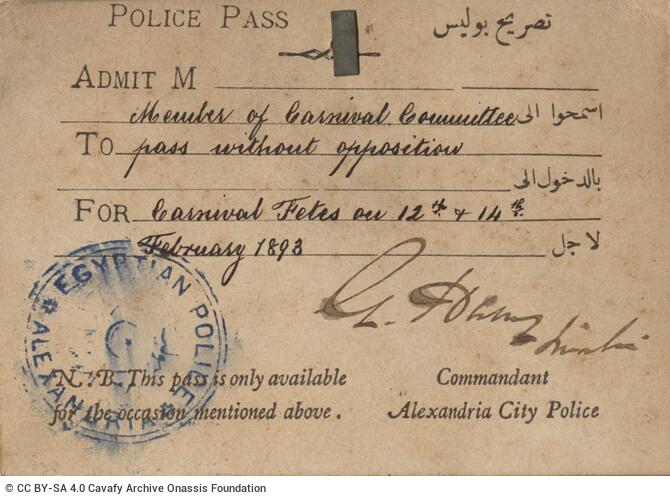 POLICE PASS تصريح بوليس
ADMIT M
Member of Carnival Committee اسمحوا الى
TO pass without opposition
بالدخول الى
FOR Carnival Fetes on 12th & 14th
February 1893 لاجل
EGYPTIAN POLICE
ALEXANDRIA
N.B. This pass is only available
for the occasion mentioned above.
Commandant
Alexandria City Police
© CC BY-SA 4.0 Cavafy Archive Onassis Foundation